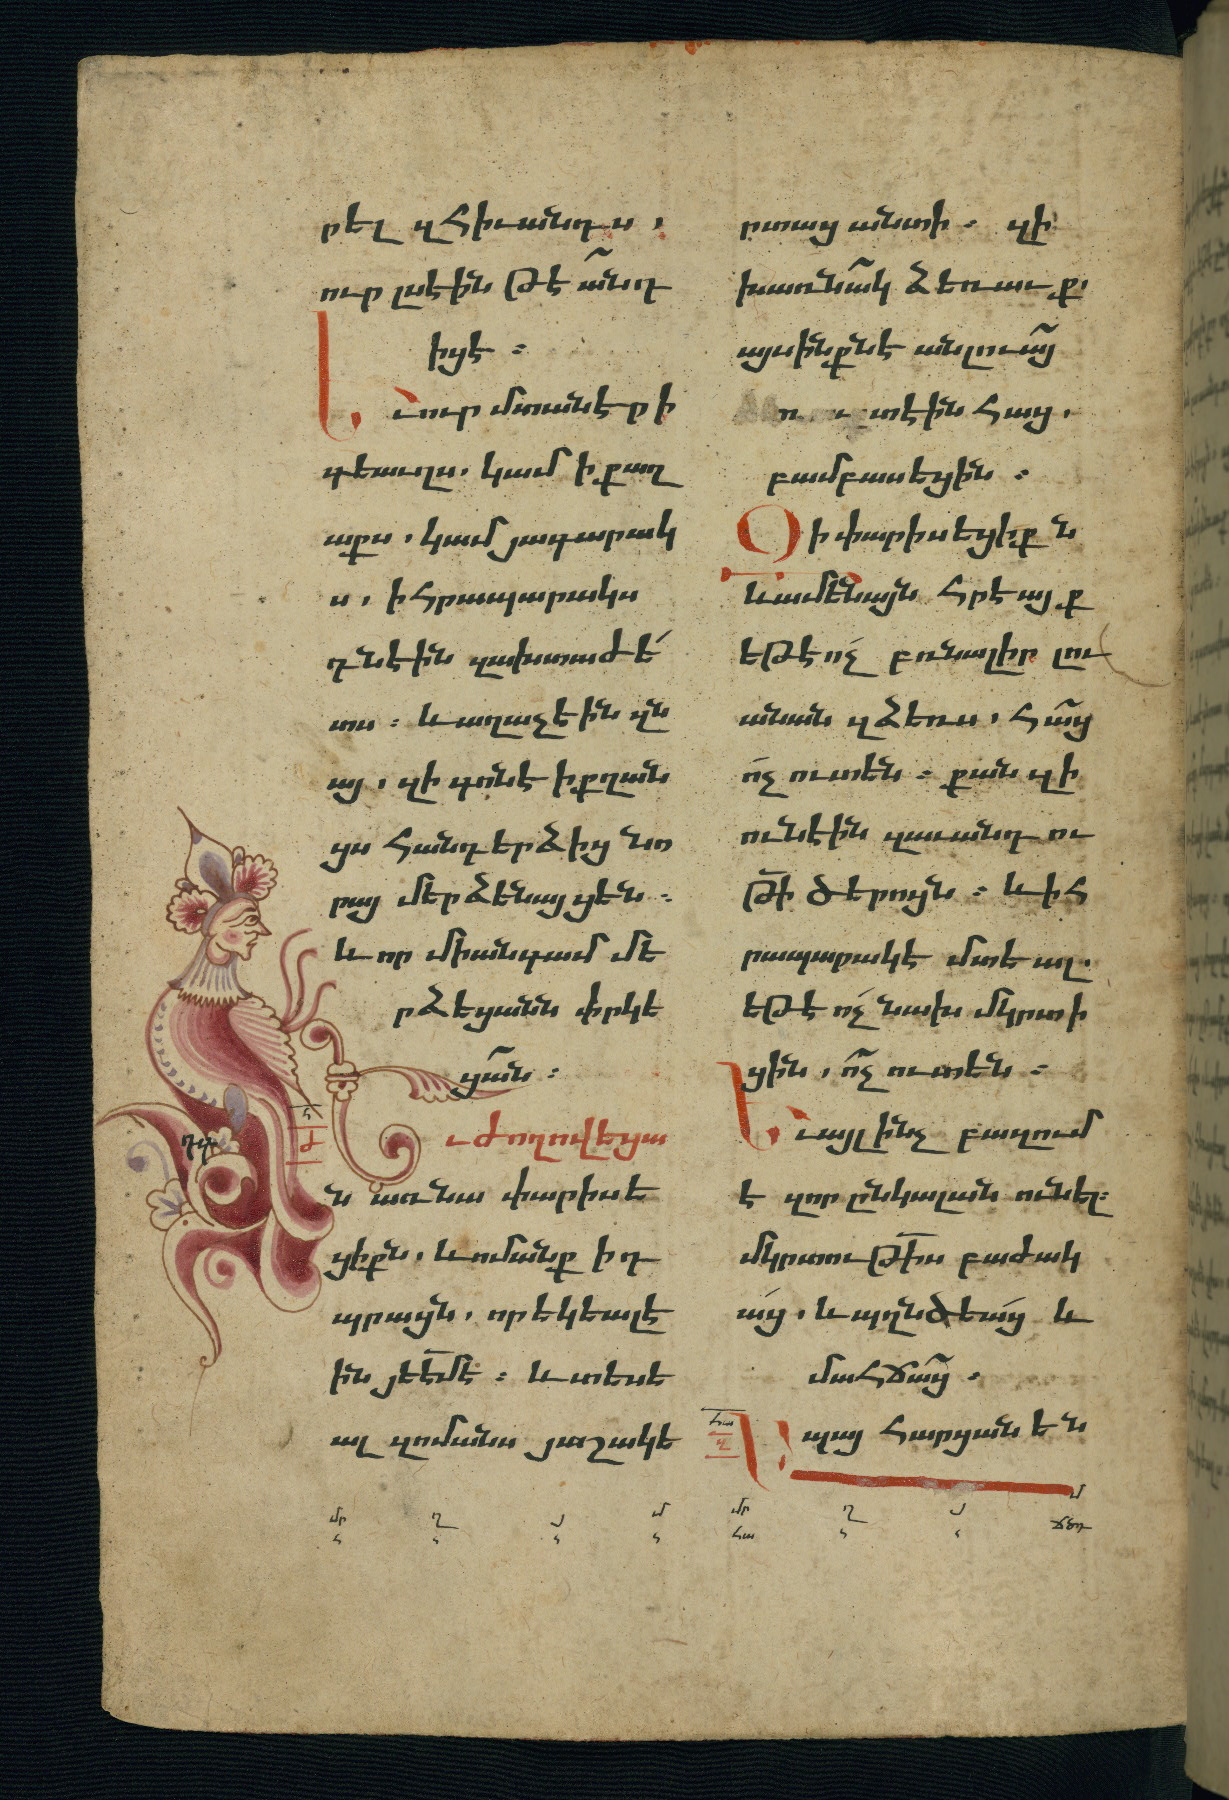 րել զհիւանդս,
ուր լսէին թէ ա՟նդ
իցէ :
Եւ ուր մտանէր ի
գեաւղս, կամ ի քաղ
աքս, կամ յագարակ
ս, ի հրապարակս
դնէին զախտաժե՛
տս : և աղաչէին զն
ա, զի գոնէ ի քղան
ցս հանդերձից նո
րայ մերձենայցեն :
և որ միանգամ մե
րձեցանն փրկե
ցա՟ն :
Եւ ժողովեցա
ն առ նա փարիսե
ցիքն, և ոմանք ի դ
պրացն, որ եկեալ է
ին յԵ՟մէ : և տեսե
ալ զոմանս յաշակե
րտաց անտի : զի
խառնա՟կ ձեռաւք,
այսինքն է անլուա՟յ
ուտէին հաց,
բամբասեցին :
Զի փարիսեցիք ն
և ամենայն հրեայք
եթէ ոչ բռնալիր լու
անան զձեռս, հա՟ց
ո՛չ ուտեն : քանզի
ունէին զաւանդ ու
թի՟ ծերոցն : և ի հ
րապարակէ մտեալ,
եթէ ո՛չ նախ մկրտի
ցին, ո՟չ ուտեն :
Եւ այլ ինչ բազում
է զոր ընկալան ունել:
մկրտութի՟ս բաժակ
ա՛ց, և պղնծեա՛ց և
մահճա՟ց :
Ապա հարցանեն